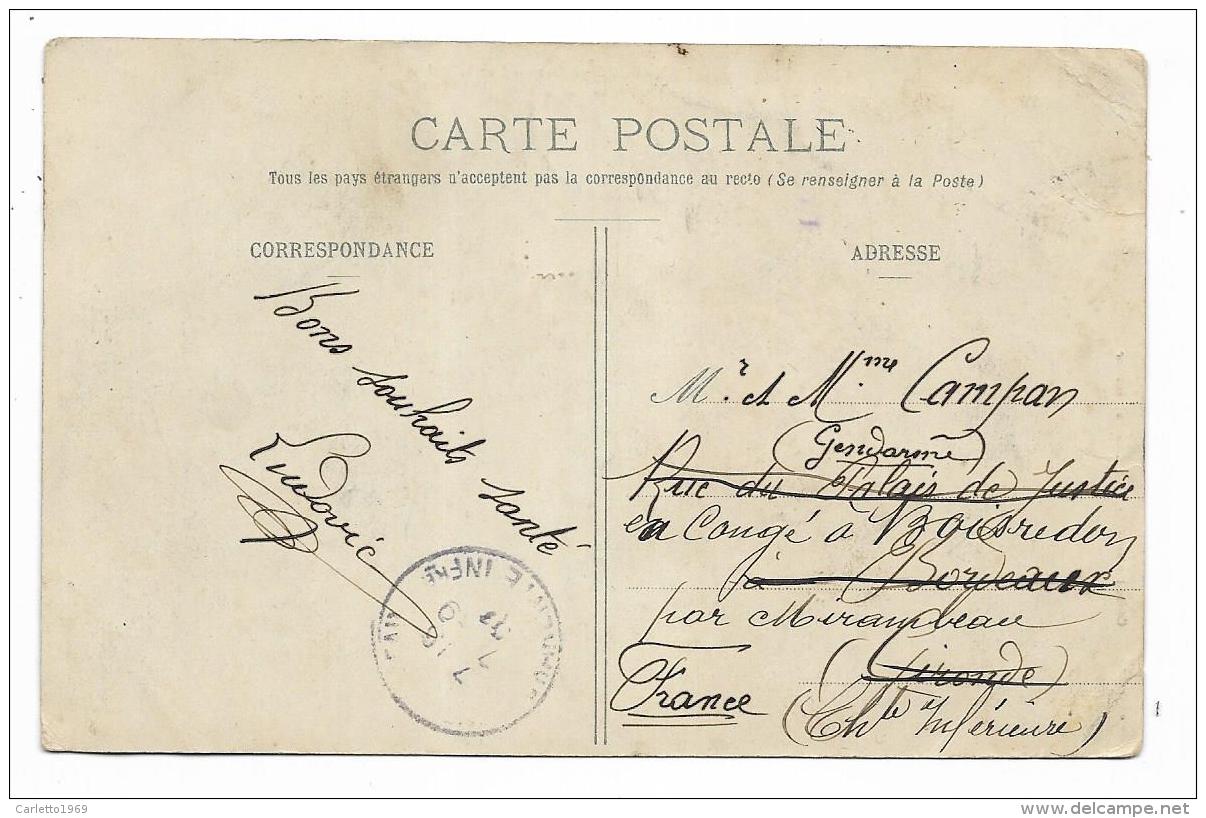 CARTE POSTALE
Tous les pays étrangers n'acceptent pas la correspondance au recto (Se renseigner à la Poste)
CORRESPONDANCE
Bons souhaits santé
Ludovic
INFRE
ADRESSE
Mr. et Mme Campan
(Gendarme)
Rue du Palais de Justice
en Congé à Boisredon
à Bordeaux
par Mirambeau
(Gironde)
France
(Chte Inférieure)
Carletto1969
delcampe.net